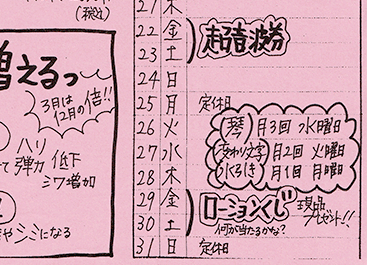 (税込)
増えるっ
3月は
12月の倍!!
ハリ
弾力 低下
シワ増加
シミになる
21 木
22 金
23 土
24 日
25 月 定休日
26 火
27 水
28 木
29 金
30 土
31 日 定休日
超音波券
(琴) 月3回 水曜日
(変わり文字) 月2回 火曜日
月1回 月曜日
ローションくじ
現品
プレゼント!!
何が当たるかな?